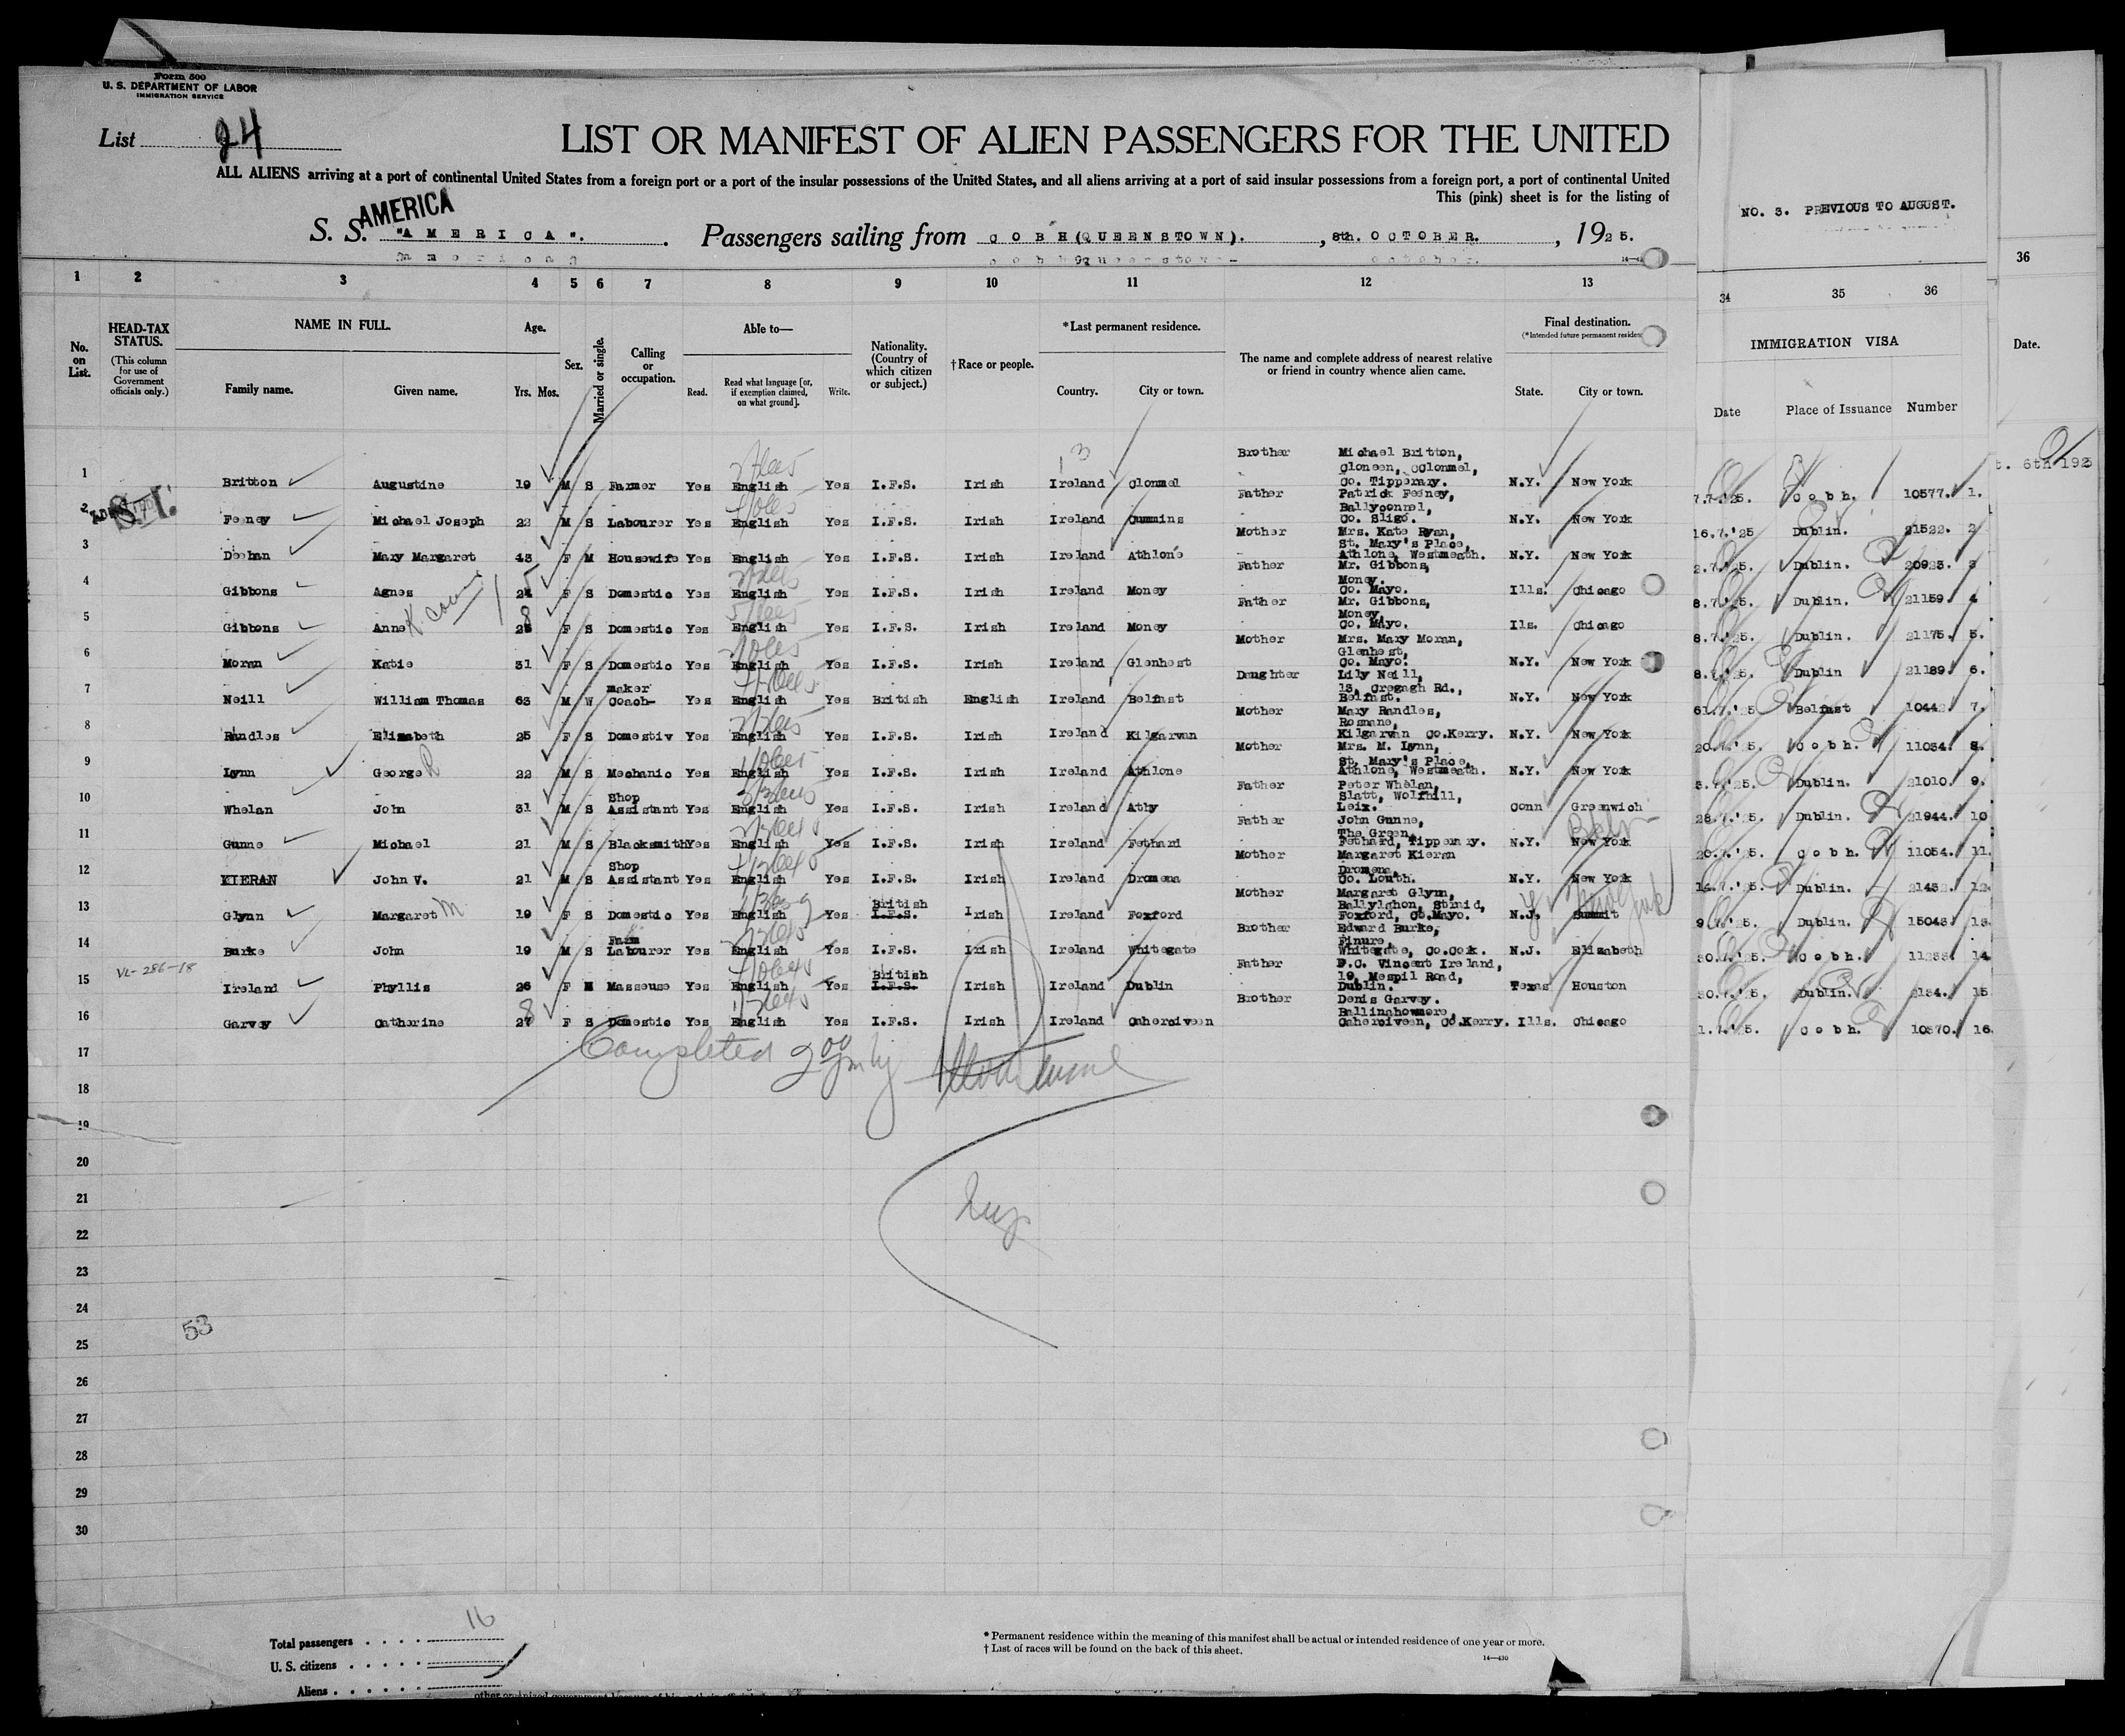 Form 500
U. S. DEPARTMENT OF LABOR
IMMIGRATION SERVICE
List 24
LIST OR MANIFEST OF ALIEN PASSENGERS FOR THE UNITED
ALL ALIENS arriving at a port of continental United States from a foreign port or a port of the insular possessions of the United States, and all aliens arriving at a port of said insular possessions from a foreign port, a port of continental United
This (pink) sheet is for the listing of
AMERICA
S. S. "AMERICA". Passengers sailing from COBH(QUEENSTOWN)., 8th. OCTOBER., 1925.
NO. 3. PREVIOUS TO AUGUST.
1 2 3 4 5 6 7 8 9 10 11 12 13 34 35 36 36
No. on List.
HEAD-TAX STATUS.
(This column for use of Government officials only.)
NAME IN FULL.
Family name. Given name.
Age.
Yrs. Mos.
Sex.
Married or single.
Calling or occupation.
Able to—
Read. Read what language [or, if exemption claimed, on what ground]. Write.
Nationality. (Country of which citizen or subject.)
†Race or people.
*Last permanent residence.
Country. City or town.
The name and complete address of nearest relative or friend in country whence alien came.
Final destination.
(*Intended future permanent residence
State. City or town.
IMMIGRATION VISA
Date Place of Issuance Number
Date.
t. 6th 192
1 Britton Augustine 19 M S Farmer Yes English Yes I.F.S. Irish Ireland Clonmel Brother Michael Britton, Cloneen, Cclonmel, Co. Tipperary. N.Y. New York 7.7.'25. Cobh. 10577. 1.
2 Feeney Michael Joseph 22 M S Labourer Yes English Yes I.F.S. Irish Ireland Cummins Father Patrick Feeney, Ballyconnel, Co. Sligo. N.Y. New York 16.7.'25 Dublin. 21522. 2
3 Deehan Mary Margaret 43 F M Housewife Yes English Yes I.F.S. Irish Ireland Athlone Mother Mrs. Kate Ryan, St. Mary's Place, Athlone, Westmeath. N.Y. New York 2.7.'25. Dublin. 20923. 3
4 Gibbons Agnes F S Domestic Yes English Yes I.F.S. Irish Ireland Money Father Mr. Gibbons, Money. Co. Mayo. Ills. Chicago 8.7.'25. Dublin. 21159. 4
5 Gibbons Anne F S Domestic Yes English Yes I.F.S. Irish Ireland Money Father Mr. Gibbons, Money, Co. Mayo. Ils. Chicago 8.7.'25. Dublin. 21175. 5.
6 Moran Katie 31 F S Domestic Yes English Yes I.F.S. Irish Ireland Glenhest Mother Mrs. Mary Moran, Glenhest, Co. Mayo. N.Y. New York 8.7.'25. Dublin 21189. 6.
7 Neill William Thomas 63 M W maker Coach- Yes English Yes British English Ireland Belfast Daughter Lily Neill, 13, Cregagh Rd., Belfast. N.Y. New York Belfast 10442. 7.
8 Randles Elizabeth 25 F S Domestiv Yes English Yes I.F.S. Irish Ireland Kilgarvan Mother Mary Randles, Rosnane, Kilgarvan Co.Kerry. N.Y. New York 20.7.'25. Cobh. 11034. 8.
9 Lynn George R 22 M S Mechanic Yes English Yes I.F.S. Irish Ireland Athlone Mother Mrs. M. Lynn, St. Mary's Place, Athlone, Westmeath. N.Y. New York Dublin. 21010. 9.
10 Whelan John 31 M S Shop Assistant Yes English Yes I.F.S. Irish Ireland Athy Father Peter Whelan, Slatt, Wolfhill, Leix. Conn Greenwich 28.7.'25. Dublin. 21944. 10
11 Gunne Michael 21 M S Blacksmith Yes English Yes I.F.S. Irish Ireland Fethard Father John Gunne, The Green, Fethard, Tipperary. N.Y. New York 20.7.'25. Cobh. 11054. 11.
12 KIERAN John V. 21 M S Shop Assistant Yes English Yes I.F.S. Irish Ireland Dromena Mother Margaret Kieran Dromena, Co. Louth. N.Y. New York 14.7.'25. Dublin. 21432. 12.
13 Glynn Margaret M 19 F S Domestic Yes English Yes British I.F.S. Irish Ireland Foxford Mother Margaret Glynn, Ballylahon, Foxford, Co.Mayo. N.J. Summit Dublin. 15043. 13.
14 Burke John 19 M S Farm Labourer Yes English Yes I.F.S. Irish Ireland Whitegate Brother Edward Burke, Finure, Whitegate, Co.Cork. N.J. Elizabeth 30.7.'25. Cobh. 14
VL-286-18
15 Ireland Phyllis 26 F Masseuse Yes English Yes British I.F.S. Irish Ireland Dublin Father D.C. Vincent Ireland, 19, Mespil Road, Dublin. Texas Houston 30.7.'25. Dublin. 2134. 15
16 Garvey Catherine F S Domestic Yes English Yes I.F.S. Irish Ireland Caherciveen Brother Denis Garvey. Ballinahowmore, Caherciveen, Co.Kerry. Ills. Chicago Cobh. 10370. 16.
17
Completed
18
19
20
21
22
23
24
53
25
26
27
28
29
30
Total passengers 16
U. S. citizens
Aliens
* Permanent residence within the meaning of this manifest shall be actual or intended residence of one year or more.
† List of races will be found on the back of this sheet.
14—430